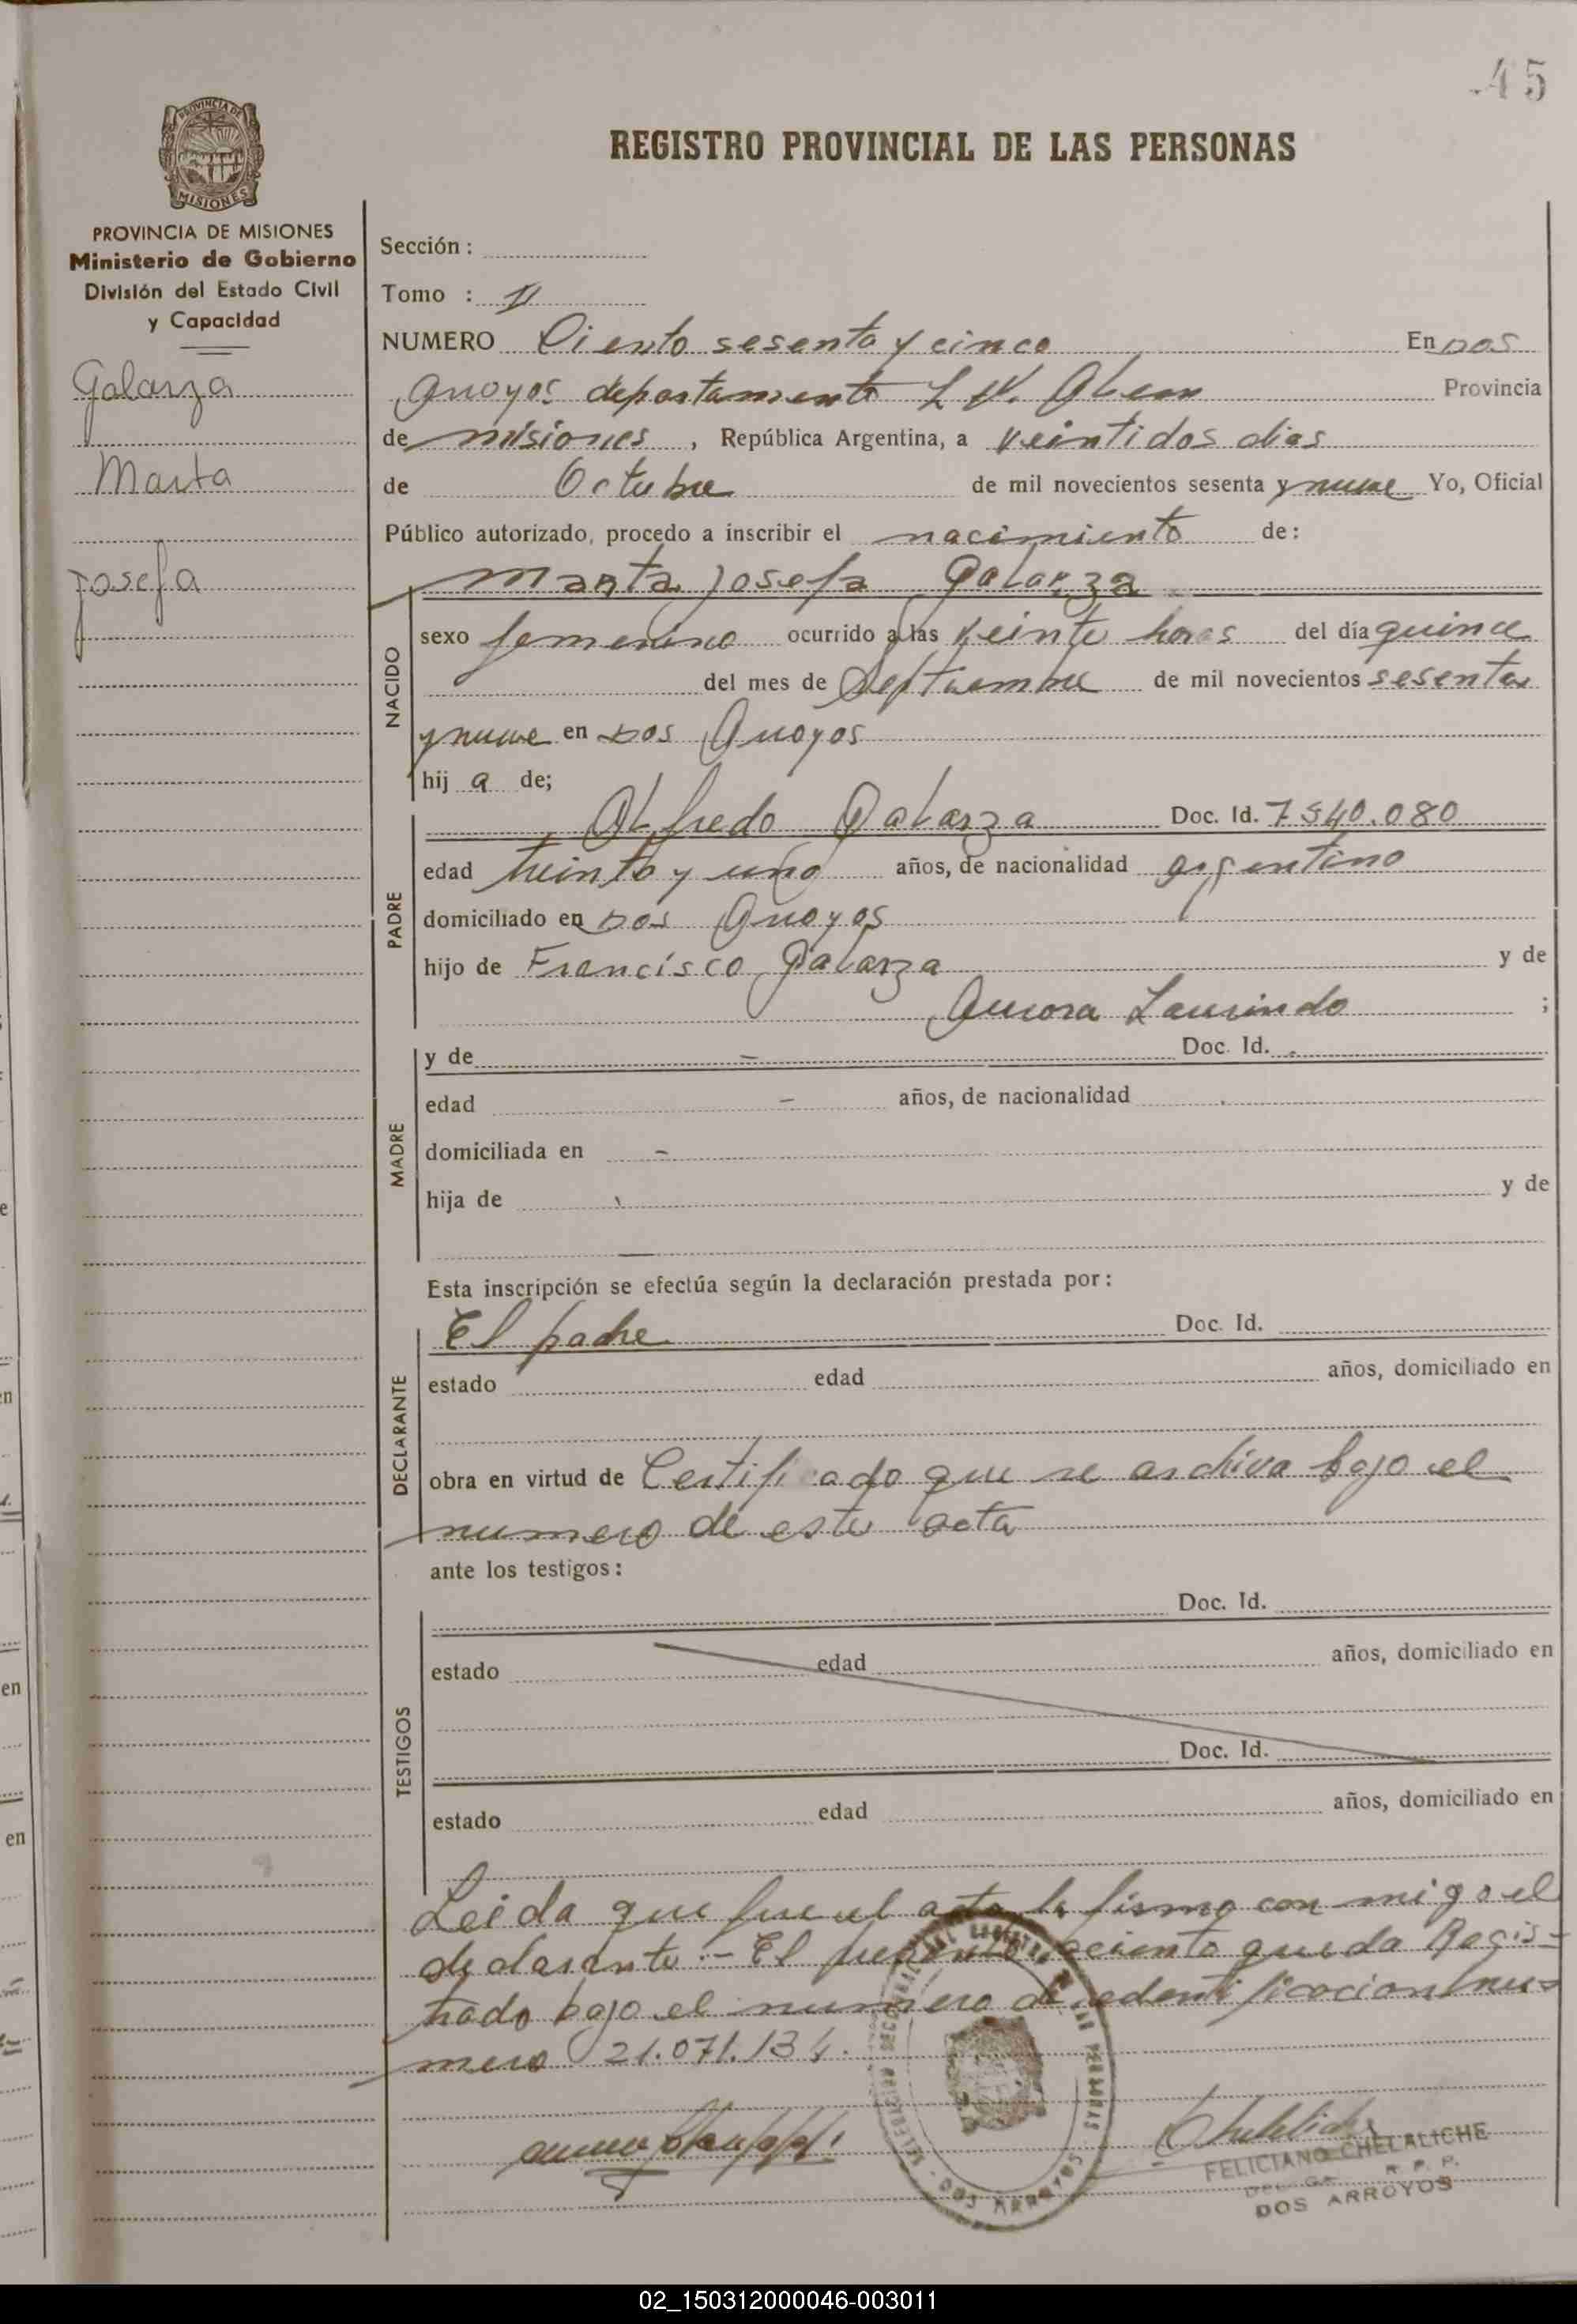 45
PROVINCIA DE
MISIONES
REGISTRO PROVINCIAL DE LAS PERSONAS
PROVINCIA DE MISIONES
Ministerio de Gobierno
División del Estado Civil
y Capacidad
Galarza
Marta
Josefa
Sección :
Tomo : II
NUMERO Ciento sesenta y cinco En Dos
Arroyos departamento L N. Alem Provincia
de misiones , República Argentina, a veintidos dias
de Octubre de mil novecientos sesenta y nueve Yo, Oficial
Público autorizado, procedo a inscribir el nacimiento de :
Marta Josefa Galarza
NACIDO
sexo femenino ocurrido a las veinte horas del día quince
del mes de Septiembre de mil novecientos sesenta
y nueve en Dos Arroyos
hij a de;
PADRE
Alfredo Galarza Doc. Id. 7540.080
edad treinta y uno años, de nacionalidad argentino
domiciliado en Dos Arroyos
hijo de Francisco Galarza y de
Aurora Laurindo ;
MADRE
y de - Doc. Id.
edad - años, de nacionalidad
domiciliada en -
hija de y de
Esta inscripción se efectúa según la declaración prestada por :
DECLARANTE
El padre Doc. Id.
estado edad años, domiciliado en
obra en virtud de Certificado que se archiva bajo el
numero de este acta
ante los testigos :
TESTIGOS
Doc. Id.
estado edad años, domiciliado en
Doc. Id.
estado edad años, domiciliado en
Leida que fue el acta la firma con migo el
declarante .- El queda Regis-
trado bajo el numero de identificacion nu-
mero 21.071.134.
DOS ARROYOS
FELICIANO CHELALICHE
R. P. P.
DOS ARROYOS
02_150312000046-003011